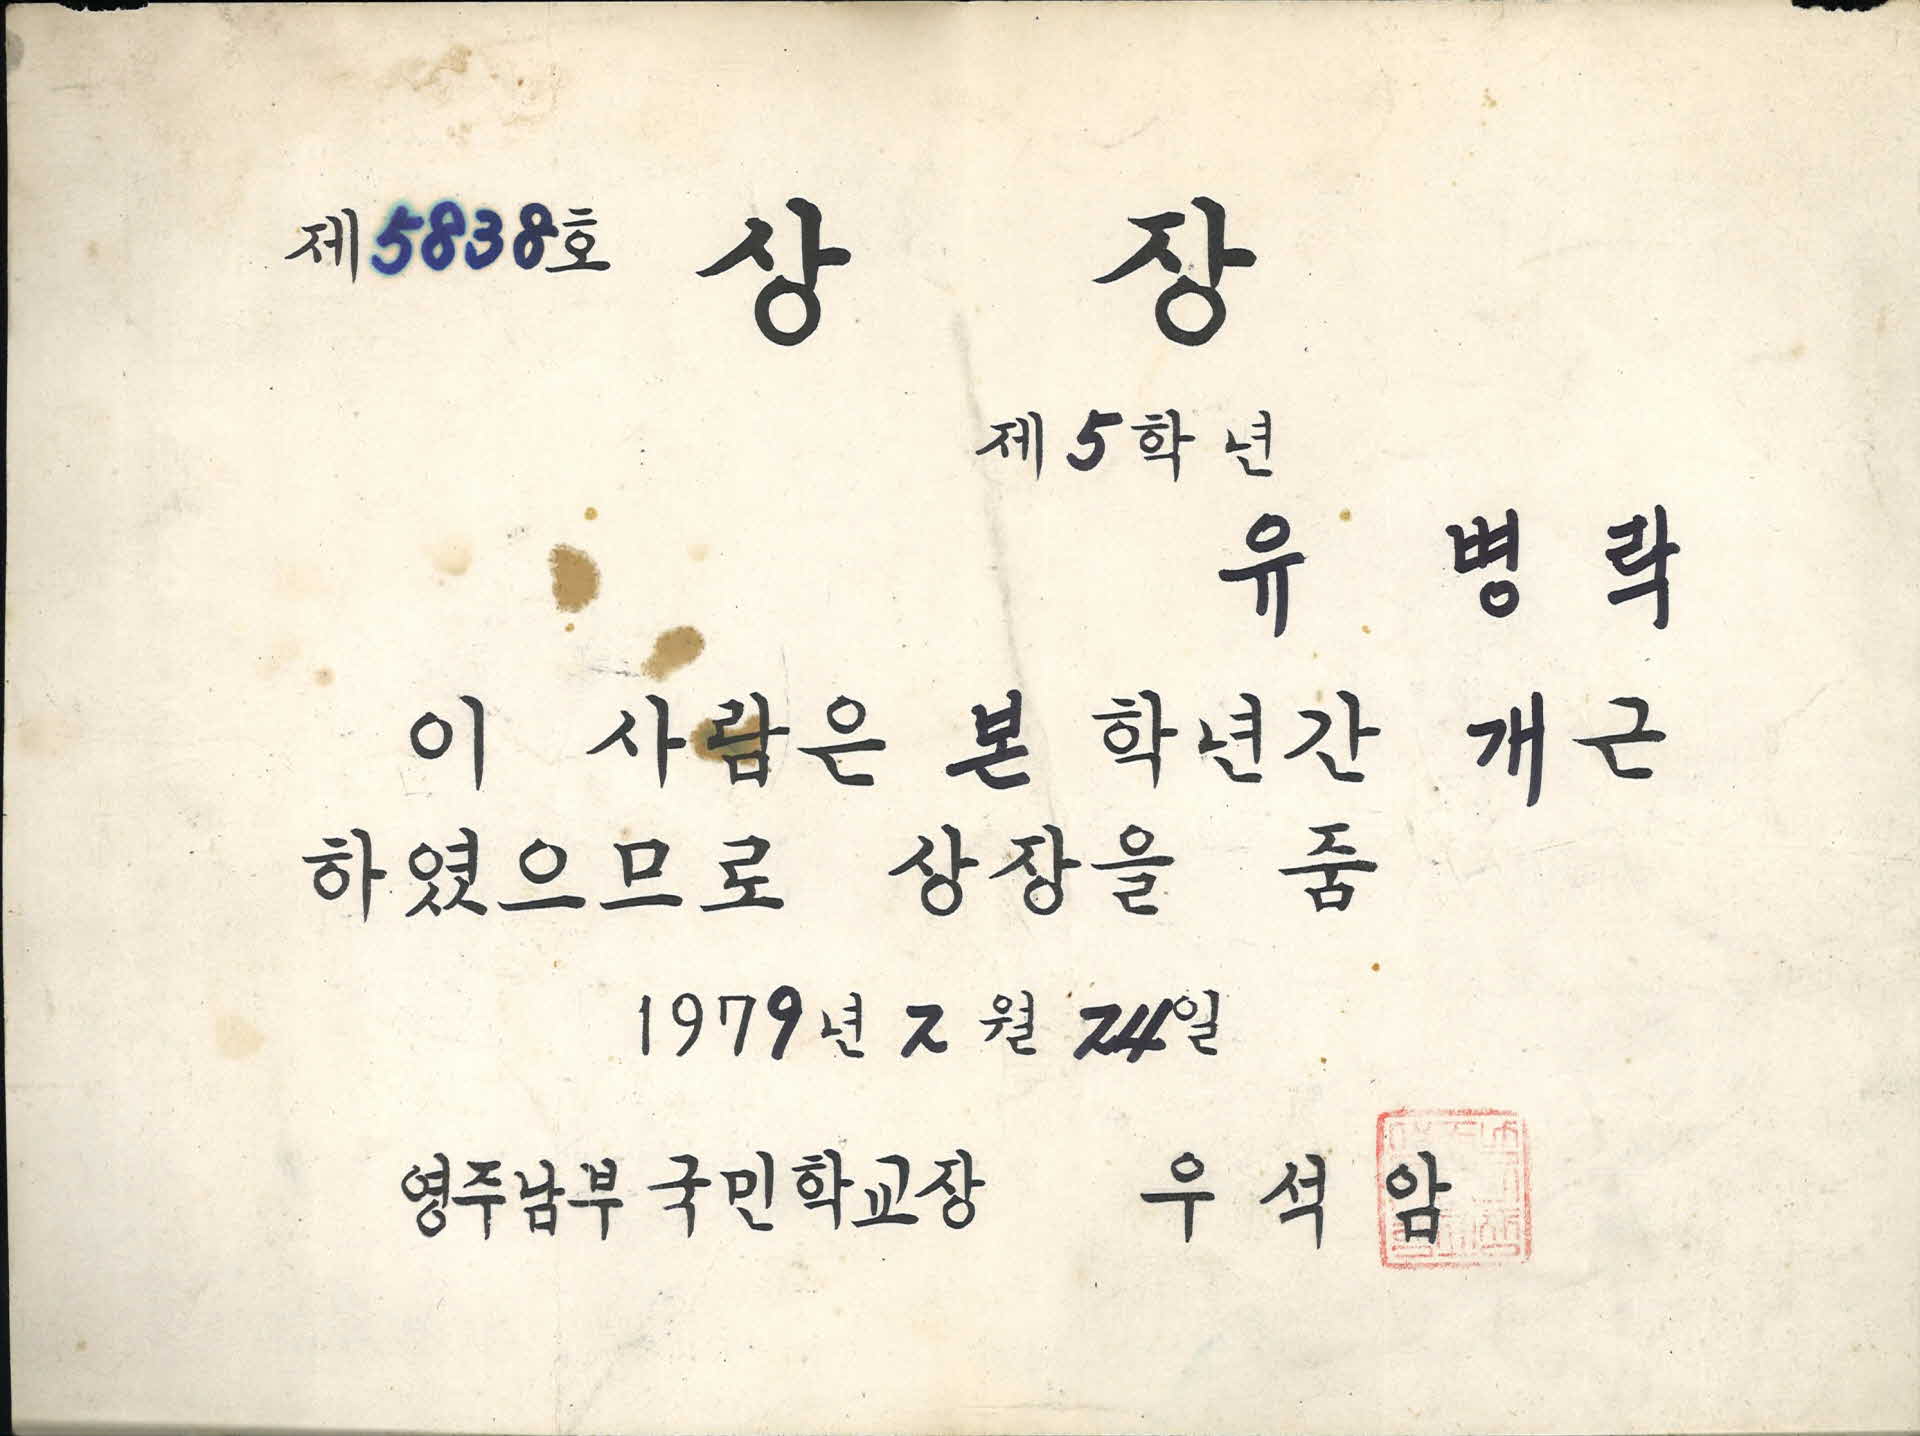 제5838호 상 장
제5학년
유 병 락
이 사람은 본 학년간 개근
하였으므로 상장을 줌
1979년 2월 24일
영주남부국민학교장 우석암